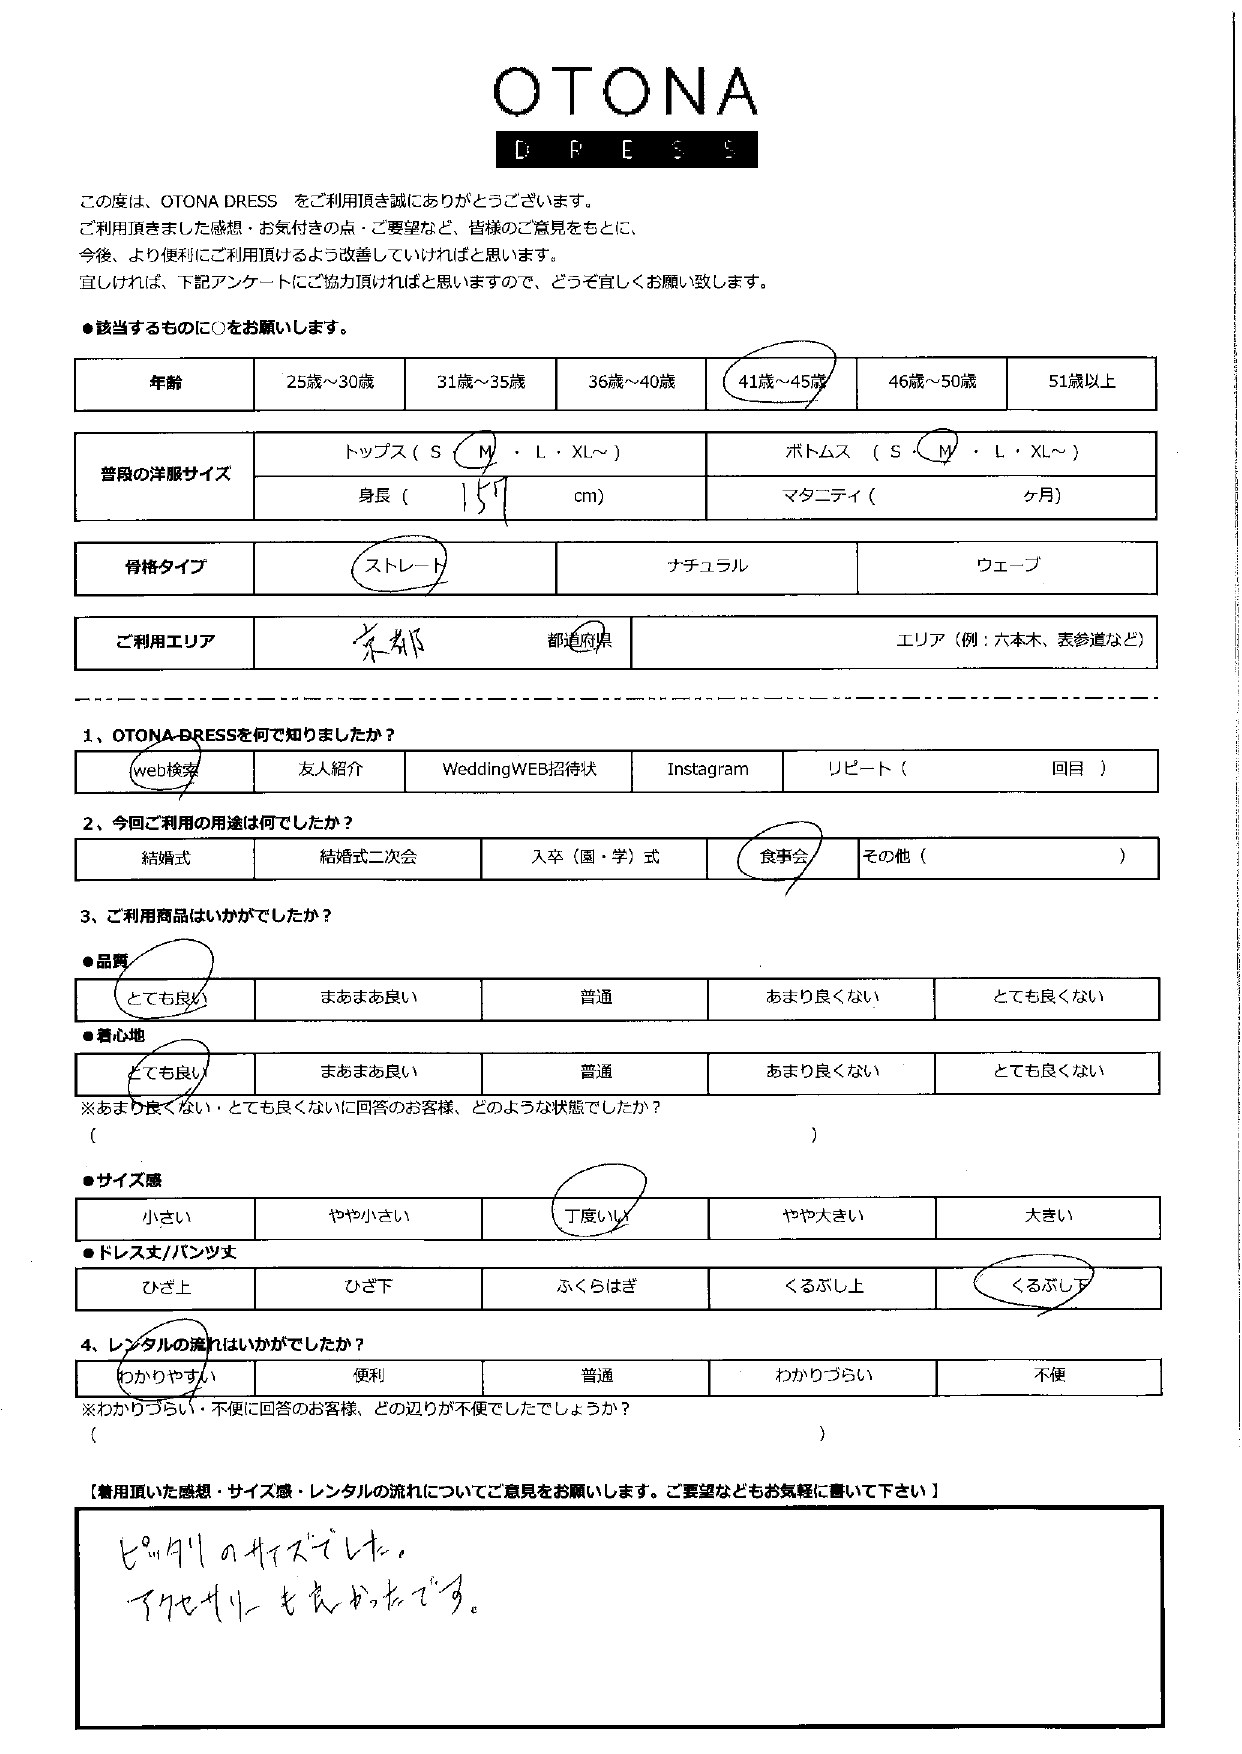 OTONA
DRESS
この度は、OTONA DRESS　をご利用頂き誠にありがとうございます。
ご利用頂きました感想・お気付きの点・ご要望など、皆様のご意見をもとに、
今後、より便利にご利用頂けるよう改善していければと思います。
宜しければ、下記アンケートにご協力頂ければと思いますので、どうぞ宜しくお願い致します。
●該当するものに○をお願いします。
年齢 25歳～30歳 31歳～35歳 36歳～40歳 41歳～45歳 46歳～50歳 51歳以上
普段の洋服サイズ トップス ( S ・ M ・ L ・ XL～ ) ボトムス ( S ・ M ・ L ・ XL～ )
身長 ( 157 cm) マタニティ ( ヶ月)
骨格タイプ ストレート ナチュラル ウェーブ
ご利用エリア 京都 都道府県 エリア（例：六本木、表参道など）
1、OTONA DRESSを何で知りましたか？
web検索 友人紹介 WeddingWEB招待状 Instagram リピート（ 回目 ）
2、今回ご利用の用途は何でしたか？
結婚式 結婚式二次会 入卒（園・学）式 食事会 その他（ ）
3、ご利用商品はいかがでしたか？
●品質
とても良い まあまあ良い 普通 あまり良くない とても良くない
●着心地
とても良い まあまあ良い 普通 あまり良くない とても良くない
※あまり良くない・とても良くないに回答のお客様、どのような状態でしたか？
（ ）
●サイズ感
小さい やや小さい 丁度いい やや大きい 大きい
●ドレス丈/パンツ丈
ひざ上 ひざ下 ふくらはぎ くるぶし上 くるぶし下
4、レンタルの流れはいかがでしたか？
わかりやすい 便利 普通 わかりづらい 不便
※わかりづらい・不便に回答のお客様、どの辺りが不便でしたでしょうか？
（ ）
【着用頂いた感想・サイズ感・レンタルの流れについてご意見をお願いします。ご要望などもお気軽に書いて下さい】
ピッタリのサイズでした。
アクセサリーも良かったです。